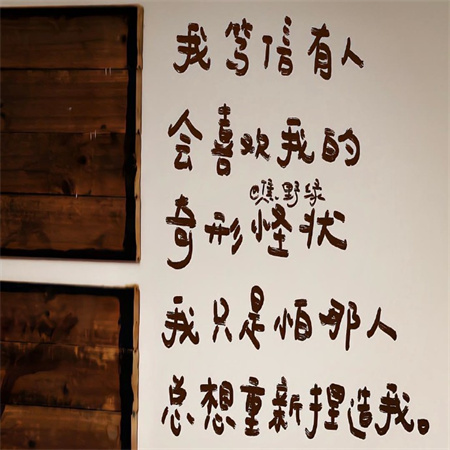 我笃信有人
会喜欢我的
@瞧野绿
奇形怪状
我只是怕那人
总想重新捏造我。